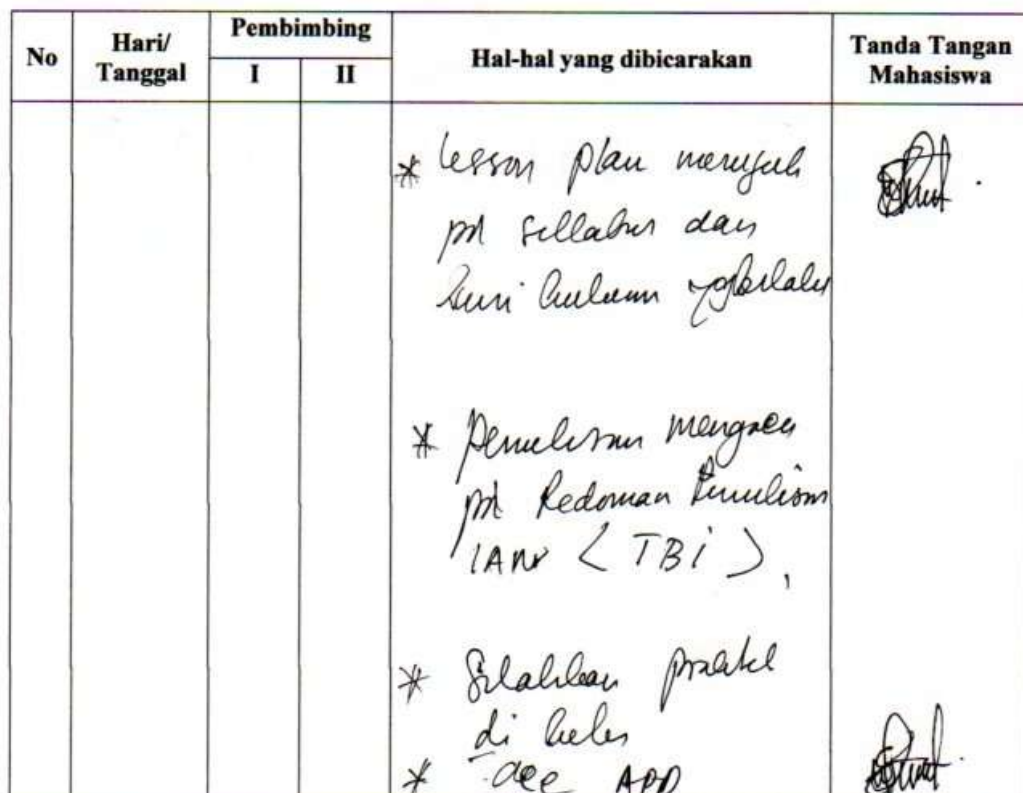 No Hari/ Tanggal Pembimbing Hal-hal yang dibicarakan Tanda Tangan Mahasiswa
I II
* Lesson plan merujuk
pd sillabus dan
kurikulum yg berlaku
* Penulisan mengacu
pd Pedoman Penulisan
IAIN < TBI >,
* Silahkan praktek
di kelas
* acc APD